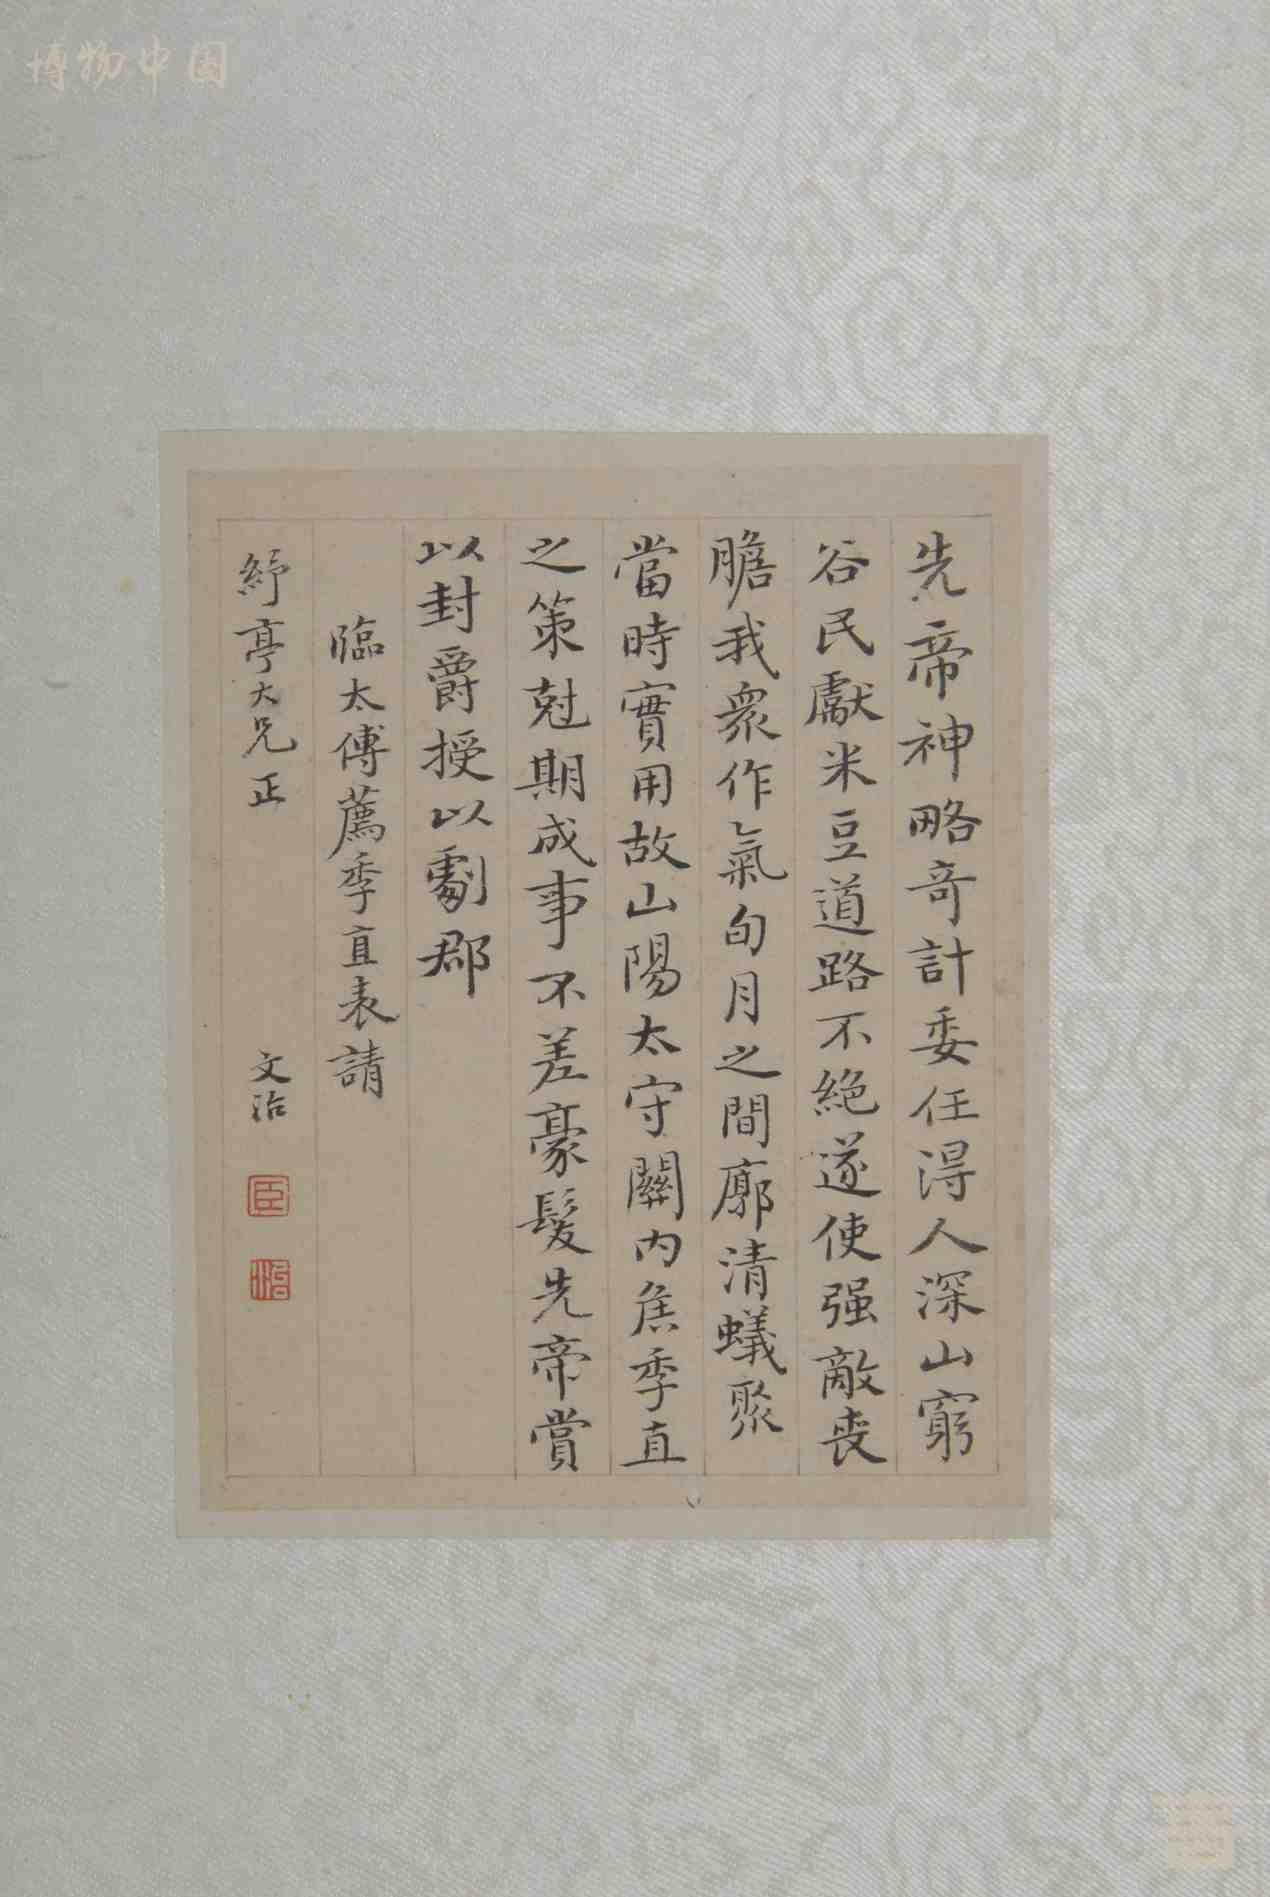 博物中国
先帝神略奇計委任得人深山窮
谷民獻米豆道路不絶遂使强敵喪
膽我衆作氣旬月之間廓清蟻聚
當時實用故山陽太守關内矦季直
之策尅期成事不差豪髮先帝賞
以封爵授以劇郡
臨太傅薦季直表請
紓亭大兄正
文治
臣
治